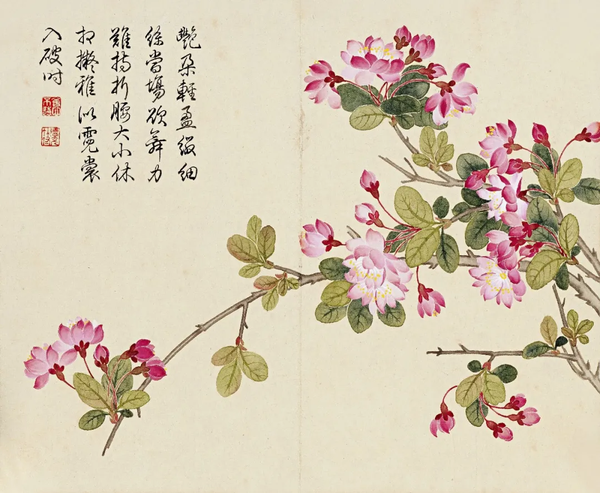 艷朵輕盈綴細
絲當場欲舞力
難持折腰大小休
相擬雅似霓裳
入破时